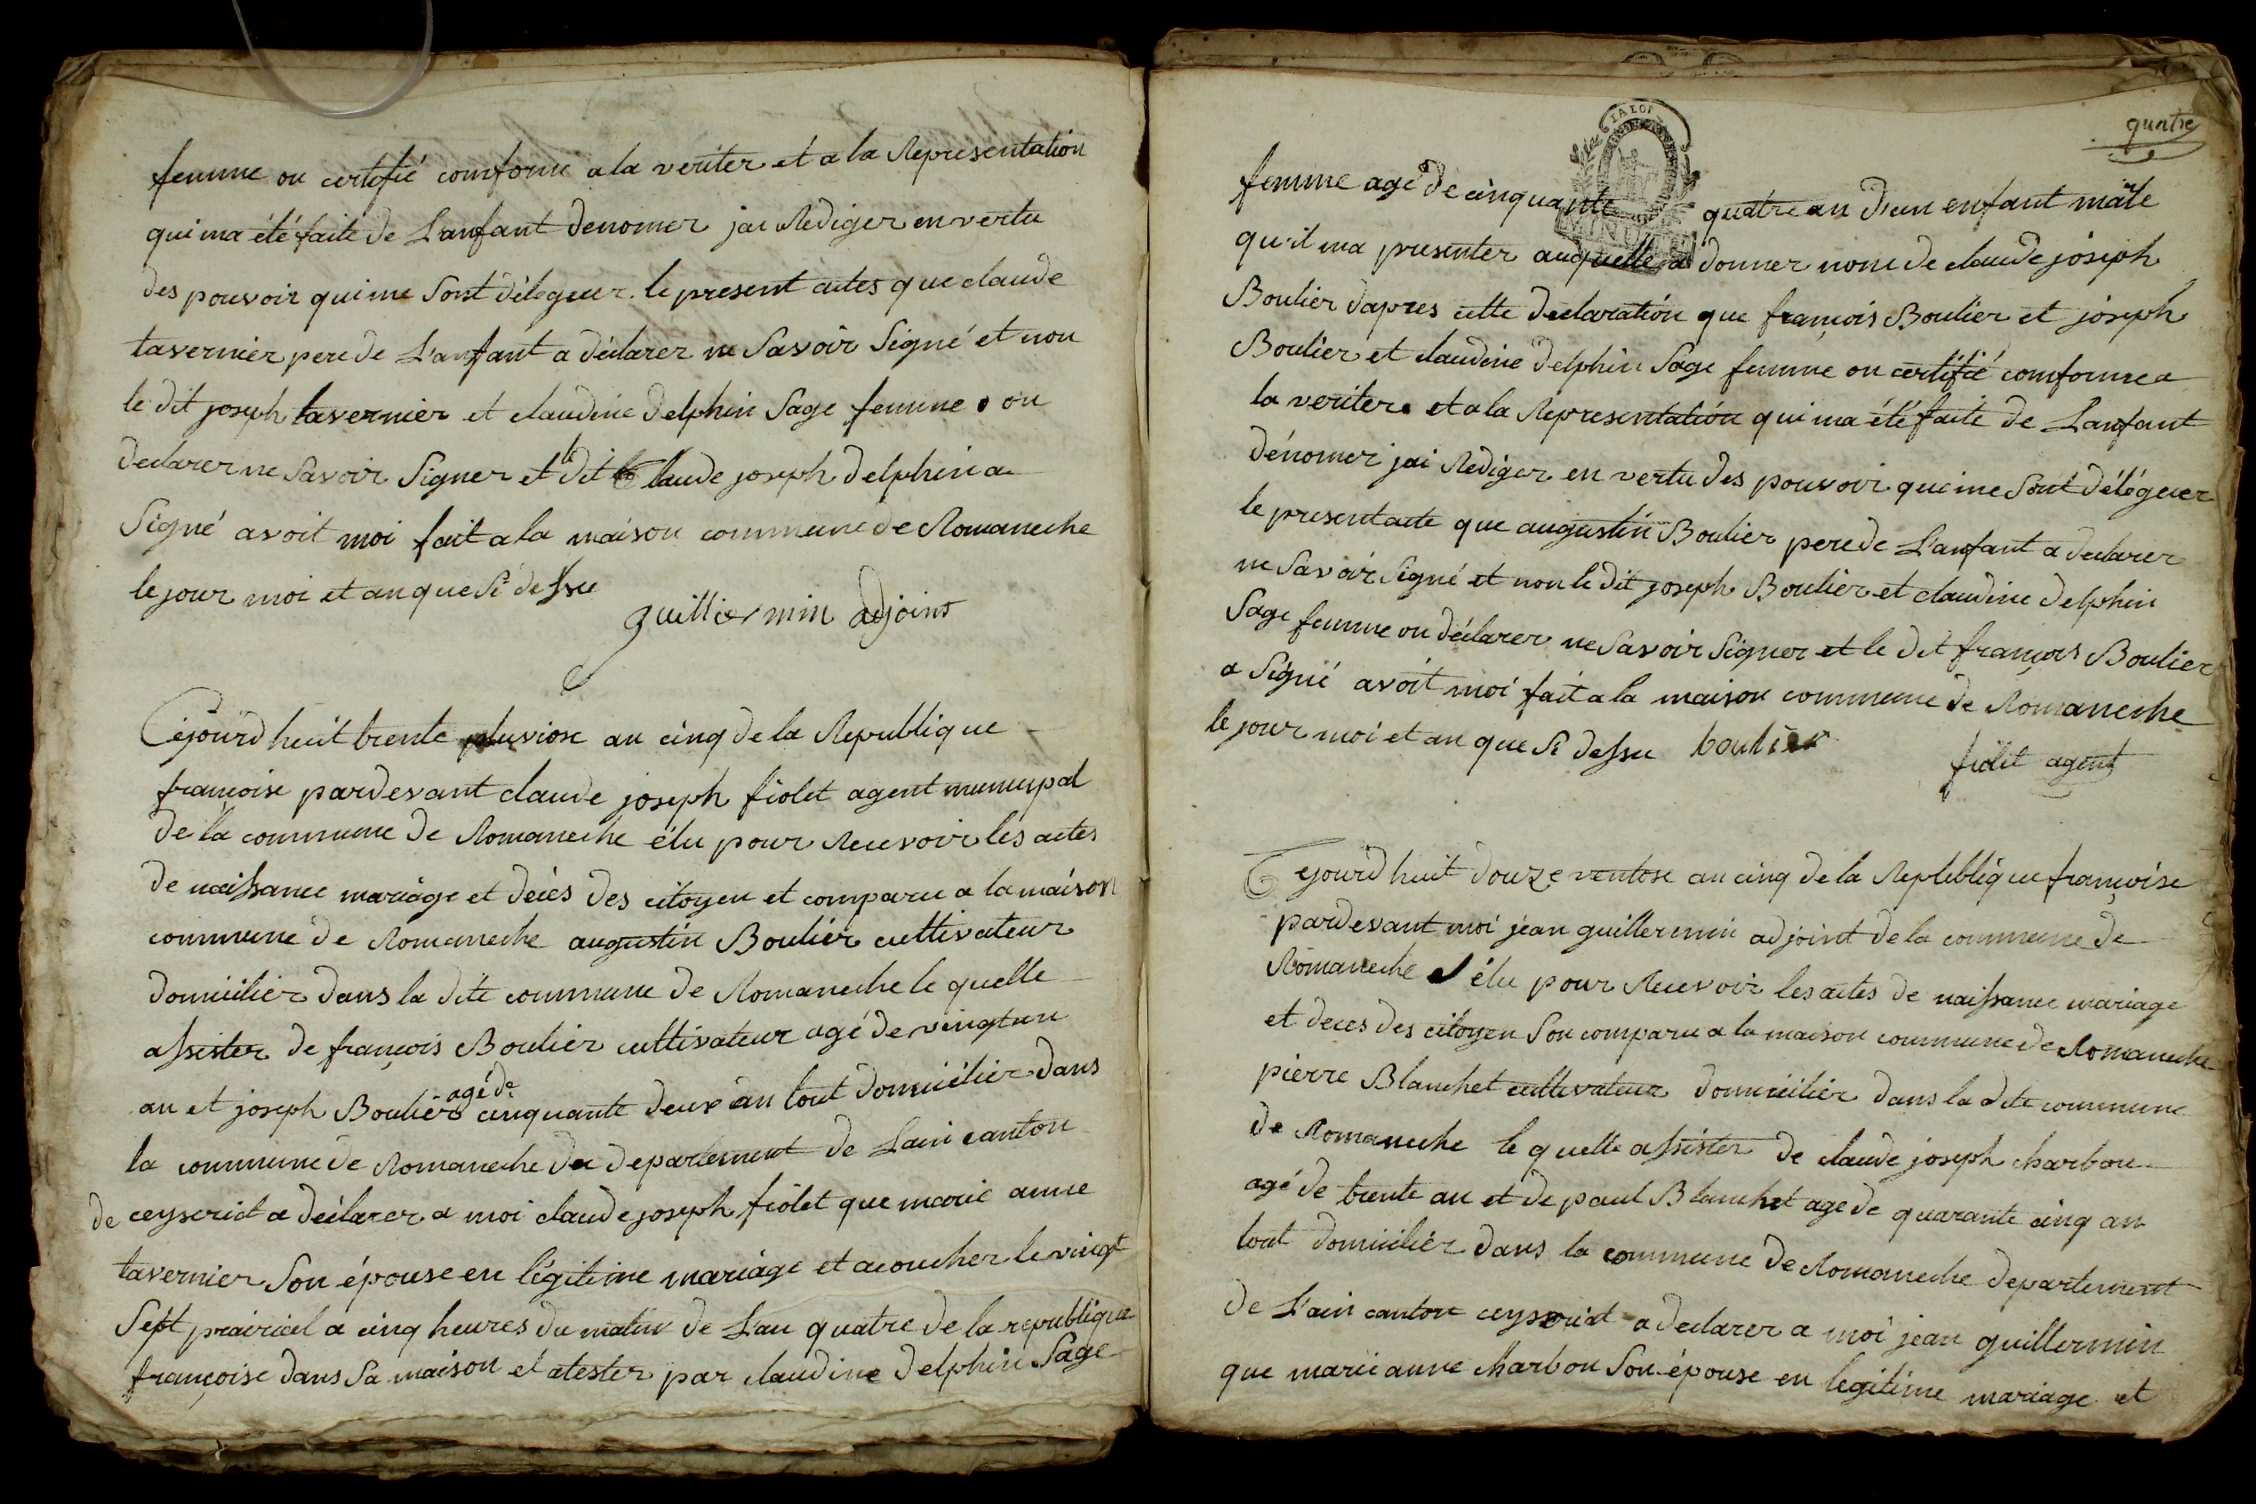 femme on certifié comforme a la veriter et a la Representation
qui ma été faite de L'anfant denomer jai Rediger en vertu
des pouvoir qui me Sont délegeur le present actes que claude
tavernier pere de L'anfant a déclarer ne Savoir Signé et non
le dit joseph tavernier et claudine delphin Sage femme on
declarer ne Savoir Signer et le dit Claude joseph delphin a
Signé avoit moi fait a la maison commune de Romaneche
le jour moi et an que Si dessu
guillermin adjoint
Cejourd huit trente pluviose an cinq de la Republique
françoise pardevant claude joseph fiolet agent municipal
de la commune de Romaneche élu pour Recevoir les actes
de naissance mariage et décès des citoyen et comparu a la maison
commune de Romaneche augustin Boulier cultivateur
domicilier dans la dite commune de Romaneche le quelle
assister de françois Boulier cultivateur agé de vingt un
an et joseph Boulier agé de cinquante deux an tout domicilier dans
la commune de Romaneche du departement de Lain canton
de ceyseriat a déclarer a moi claude joseph fiolet que marie anne
tavernier Son épouse en légitime mariage et acoucher le vingt
Sept prairial a cinq heures du matin de L'an quatre de la republique
françoise dans Sa maison et atester par claudine delphin Sage
quatre
LA LOI
femme agé de cinquante quatre an d'un enfant mâle
qu'il ma presenter auquelle a donner nom de claude joseph
Boulier dapres cette declaration que françois Boulier et joseph
Boulier et claudine delphin Sage femme on certifié comforme a
la veriter et a la Representation qui ma été faite de L'anfant
dénomer jai Rediger en vertu des pouvoir qui me Sont délégeuer
le present acte que augustin Boulier pere de L'anfant a declarer
ne Savoir Signé et non le dit joseph Boulier et claudine delphin
Sage femme on déclarer ne Savoir Signer et le dit françois Boulier
a Signé avoit moi fait a la maison commune de Romaneche
le jour moi et an que Si dessu boulier
fiolet agent
Cejourd huit douze ventose an cinq de la Repleblique françoise
pardevant moi jean guillermin adjoint de la commune de
Romaneche élu pour Recevoir les actes de naissance mariage
et deces des citoyen Son comparu a la maison commune de Romaneche
pierre Blanchet cultivateur domicilier dans la dite commune
de Romaneche le quelle assister de claude joseph charbon
agé de trente an et de paul Blanchet age de quarante cinq an
tout domicilier dans la commune de Romaneche departement
de L'ain canton ceyseriat a declarer a moi jean guillermin
que marie anne charbon Son épouse en legitime mariage et